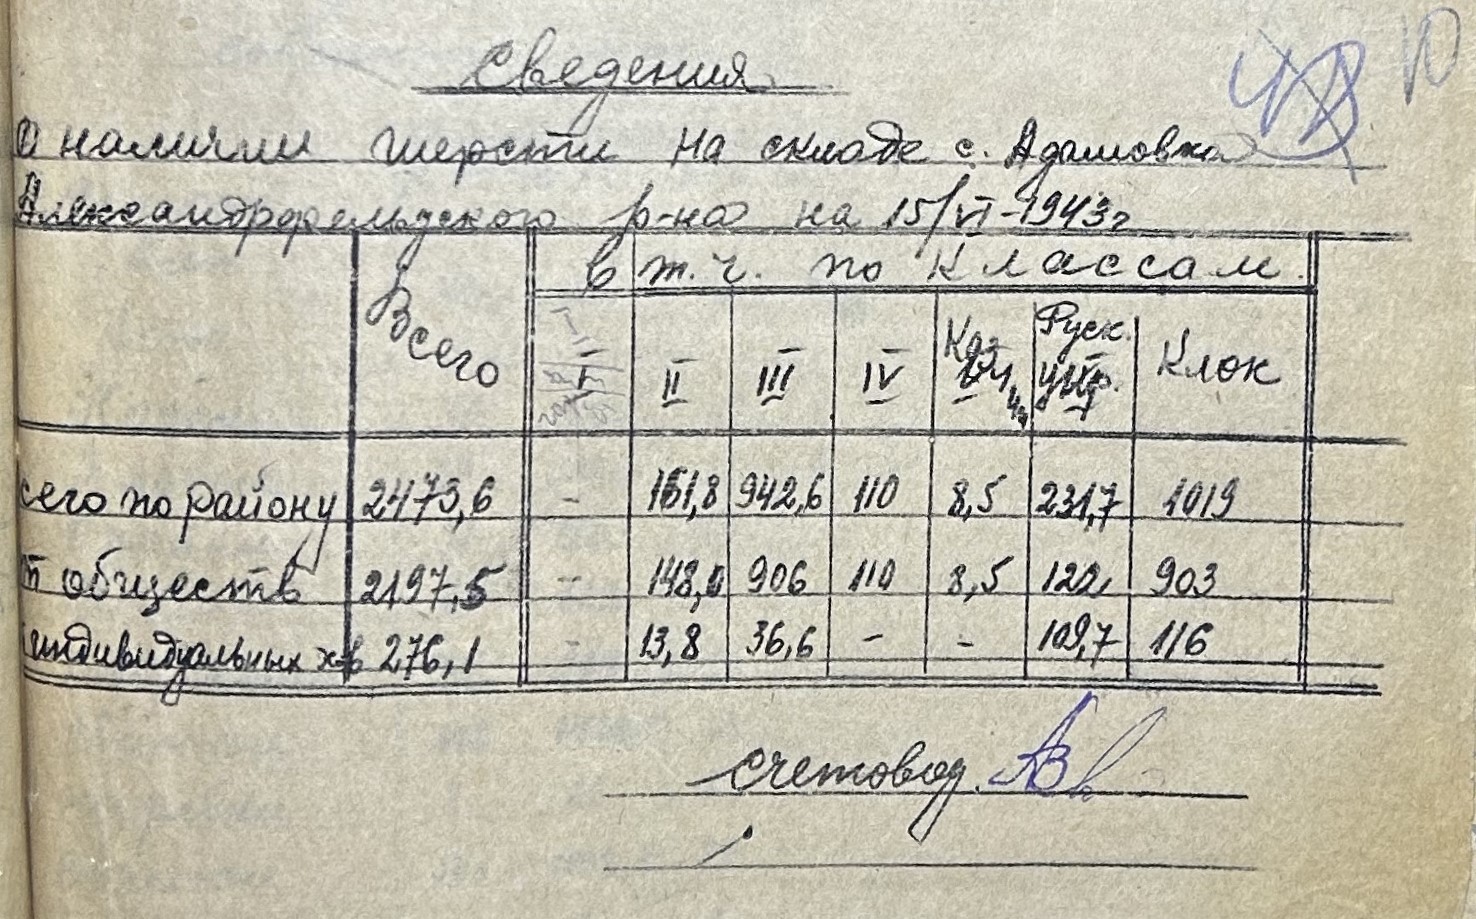 10
Сведения
О наличии шерсти на складе с. Адамовка
Александрфельдского р-на на 15/VI-1943г
Всего в т.ч. по классам
I II III IV Руск. Клок
сего по району 2473,6 - 161,8 942,6 110 8,5 231,7 1019
от обществ 2197,5 - 148,0 906 110 8,5 122 903
индивидуальных х-в 276,1 - 13,8 36,6 - - 109,7 116
счетовод.